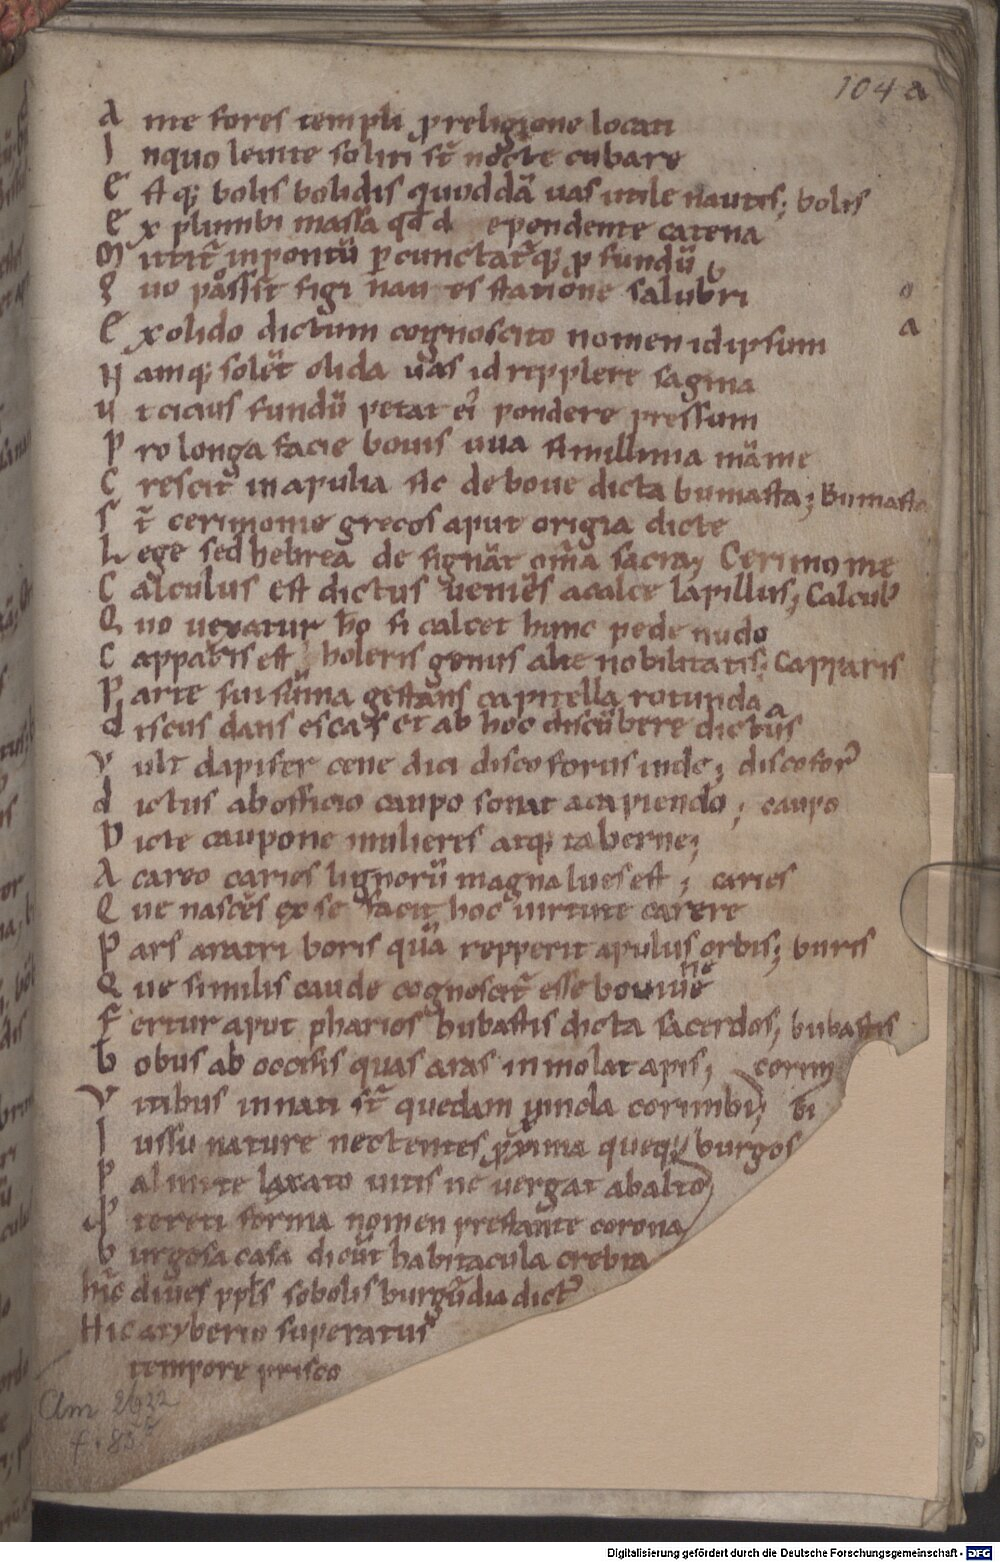 104 a
A me fores templi p religione locati
I nquo leuite soliti st̄ nocte cubare
E stq; bolis bolidis quoddā uas utile nautis; bolis
E x plumbi massa qd d ependente catena
M ittit̄ inpontū p cunctatq; p fundū
Q uo possit figi nauis statione salubri
E x olido dictum cognoscito nomen id ipsum
N amq; solet olida uas id replere sagina
U t cicius fundū petat ei pondere pressum
P ro longa facie bouis uua simillima māme
C rescit inapulia sic deboue dicta bumasta; Bumasta
S t̄ cerimonie grecos aput origia dicte
L ege sed hebrea de signāt om̄a sacra; Cerimonie
C alculus est dictus ueniēs acalce lapillus; Calcul
Q uo uexatur ho si calcet hunc pede nudo
C apparis est holeris genus alte nobilitatis; Capparis
P arte sui sūma gestans capitella rotunda
d iscus dans escas et ab hoc discūbere dictus
V ult dapifer cene dici discoforus inde; discofor
d ictus ab officio caupo sonat acapiendo; caupo
D icte caupone mulieres atq; taberne;
A careo caries lignorū magna lues est; caries
Q ue nascēs ex se facit hoc uirtute carere
P ars aratri boris quā repperit apulus orbis; buris
Q ue similis caude cognoscit̄ esse bouine
F ertur aput pharios bubastis dicta sacerdos; bubastis
b obus ab occisis quas aras inmolat apis; corim
V itibus innati st̄ quedam uincla corimbi; bi
I ussu nature nectentes pxima queq; burgos
P almite laxato uitis ne uergat abalto
tereti forma nomen prestante corona
b urgosa casa dicūt habitacula crebra
hinc diues ppls sobolis burgūdia dict
Hic atyberio superatus
tempore prisco
Clm 2622
f. 83
Digitalisierung gefördert durch die Deutsche Forschungsgemeinschaft - DFG